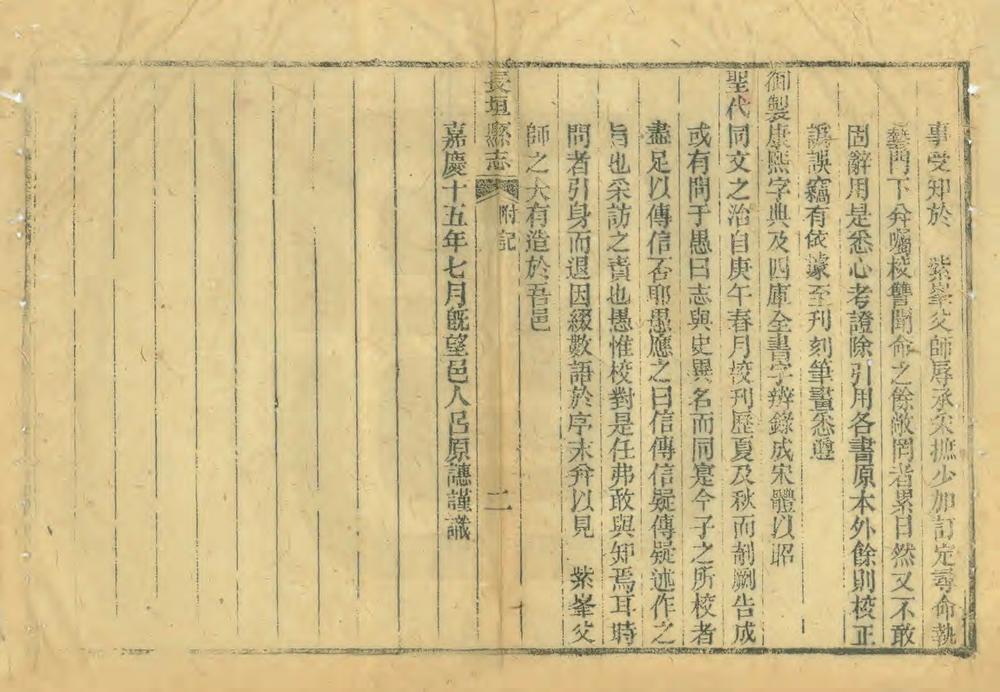 事受知於 紫峯父師辱承矣摭少加訂定尋命執
藝門下并囑校讐聞命之餘敝罔者累日然又不敢
固辭用是悉心考證除引用各書原本外餘則校正
譌誤竊有依據至刊刻筆畫悉遵
御製康熙字典及四庫全書字辨錄成宋體以昭
聖代同文之治自庚午春月校刊歷夏及秋而剞劂告成
或有問于愚曰志與史異名而同寔今子之所校者
盡足以傳信否耶愚應之曰信傳信疑傳疑述作之
旨也采訪之責也愚惟校對是任弗敢與知焉耳時
問者引身而退因綴數語於序末并以見 紫峯父
師之大有造於吾邑
長垣縣志 附記 二
嘉慶十五年七月旣望邑人呂原謹識